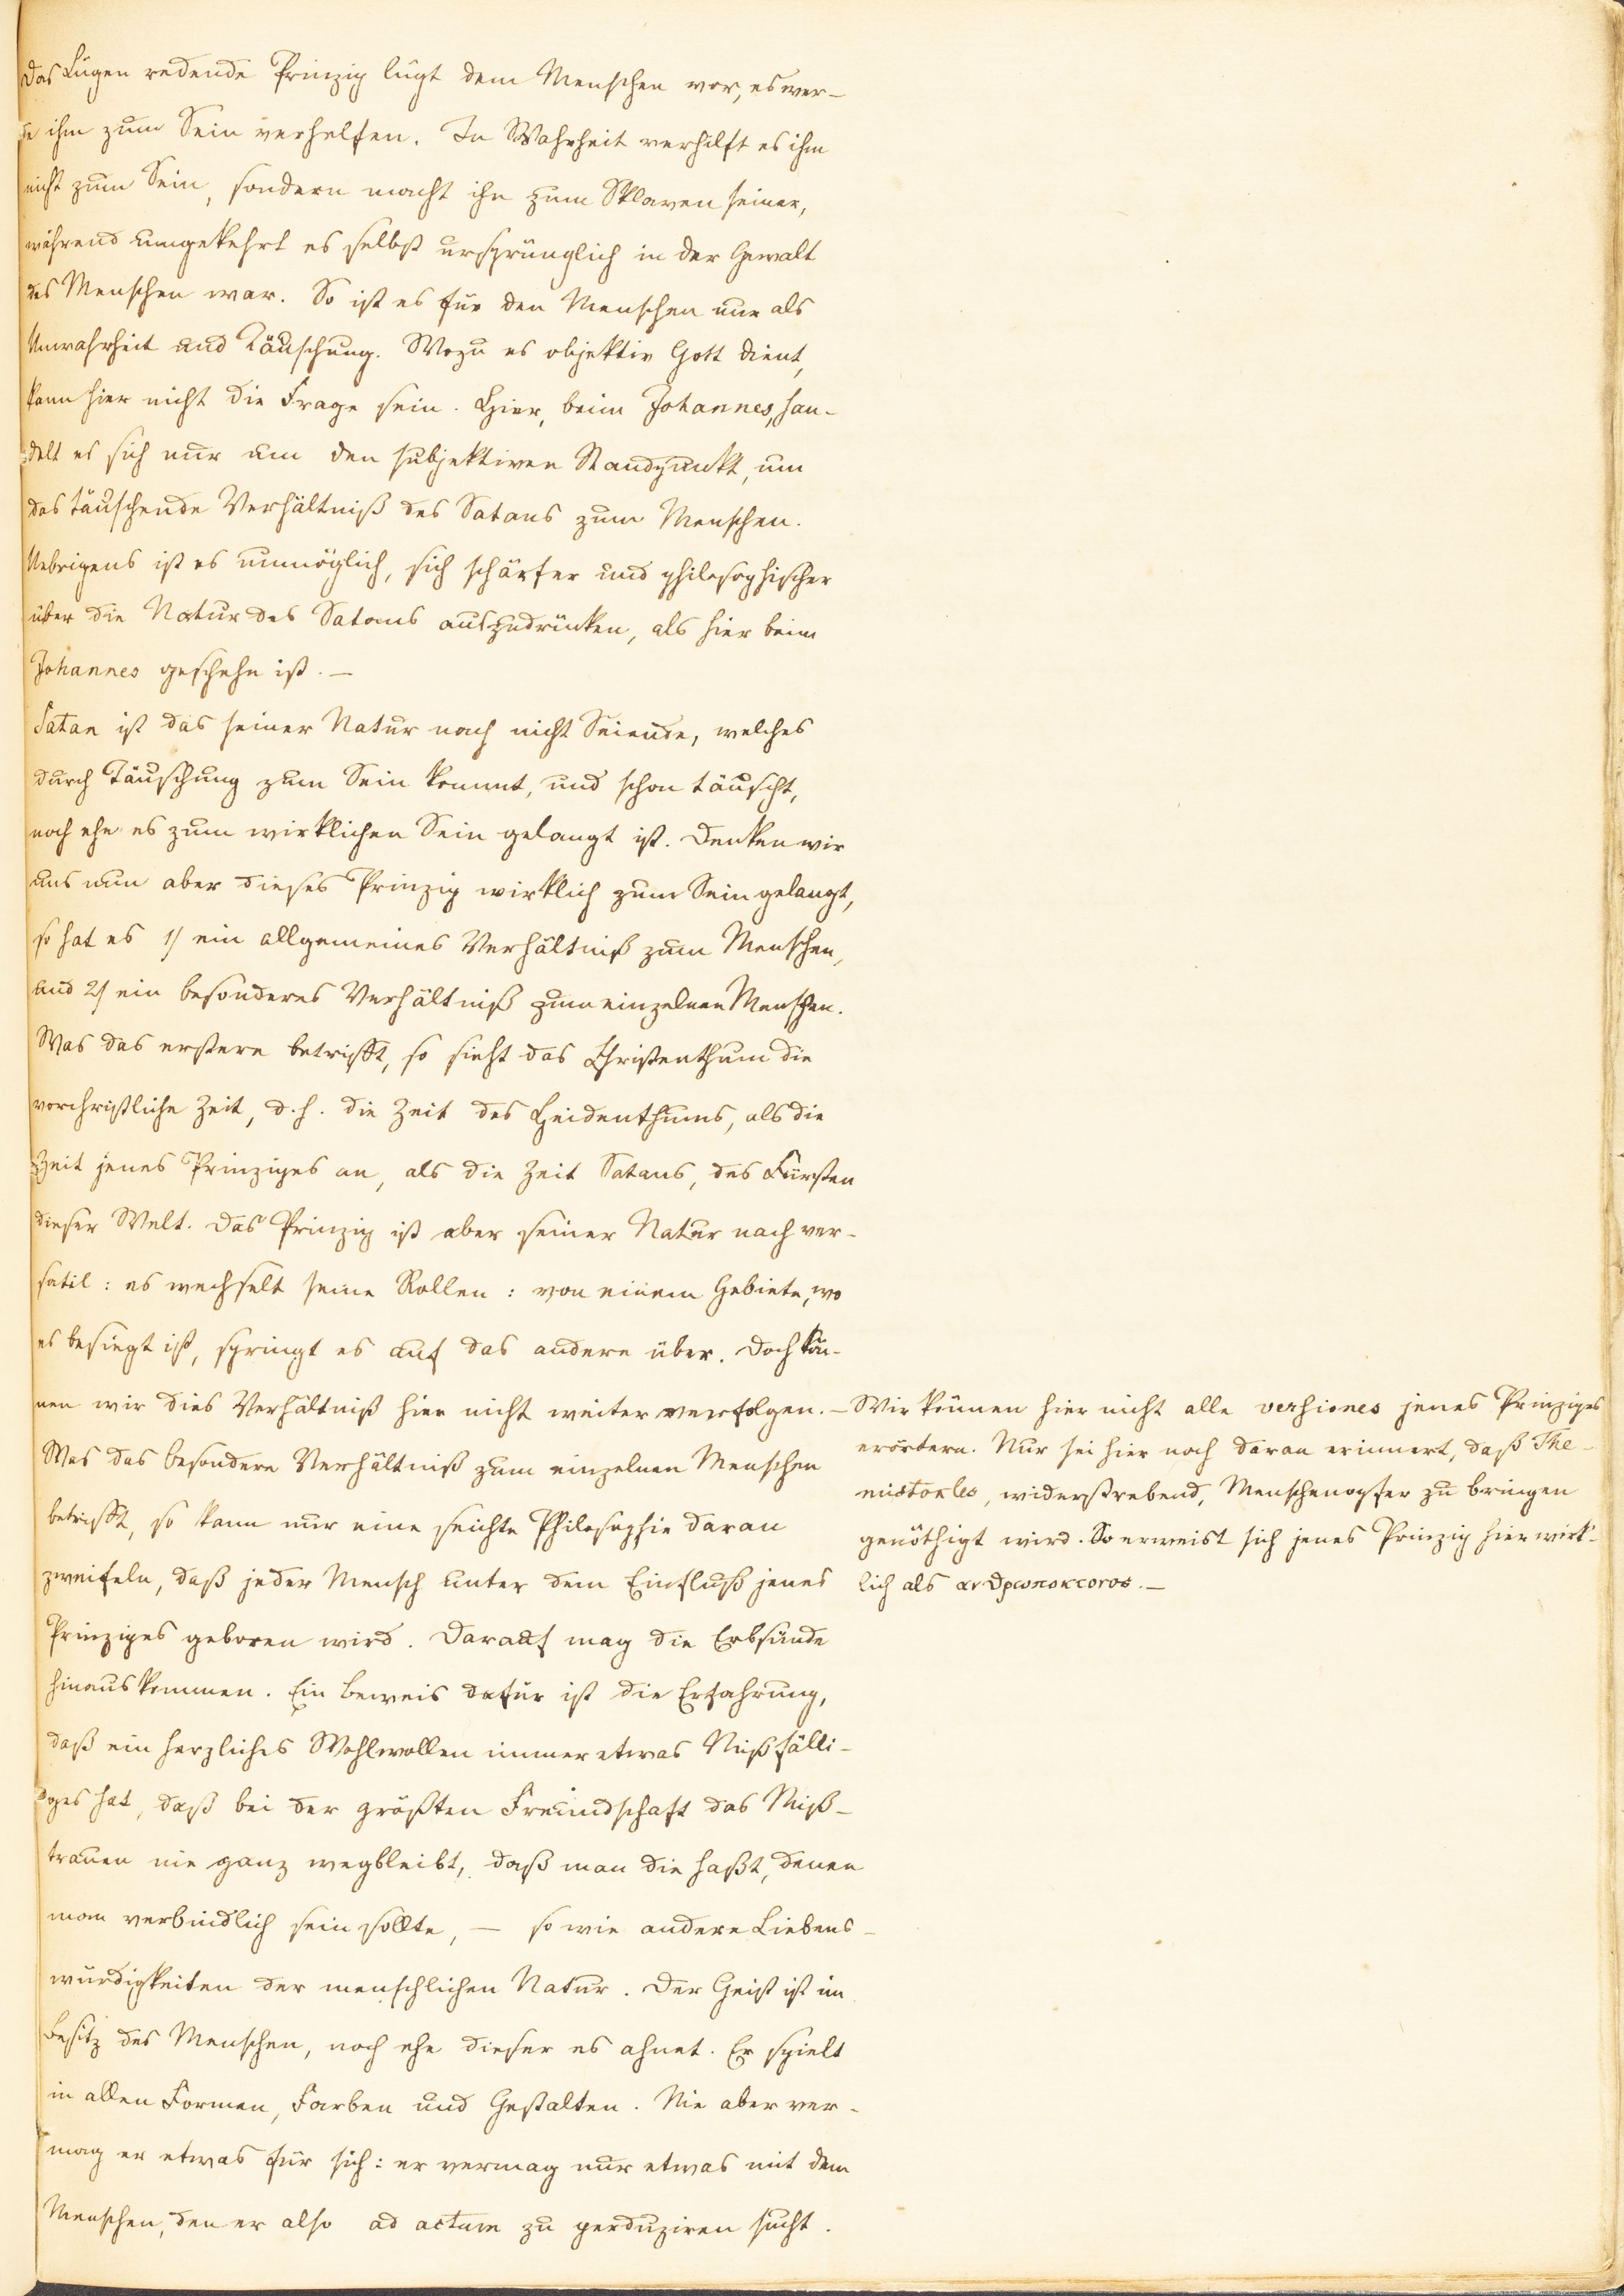 Das Lügen redende Prinzip lügt dem Menschen vor, es wer-
de ihm zum Sein verhelfen. In Wahrheit verhilft es ihm
nicht zum Sein, sondern macht ihn zum Sklaven seiner,
während umgekehrt es selbst ursprünglich in der Gewalt
des Menschen war. So ist es für den Menschen nur als
Unwahrheit und Täuschung. Wozu es objektiv Gott dient,
kann hier nicht die Frage sein. Hier, beim Johannes, han-
delt es sich nur um den subjektiven Standpunkt, um
das täuschende Verhältniß des Satans zum Menschen.
Uebrigens ist es unmöglich, sich schärfer und philosophischer
über die Natur des Satans auszudrücken, als hier beim
Johannes geschehn ist. —
Satan ist das seiner Natur nach nicht Seiende, welches
durch Täuschung zum Sein kommt, und schon täuscht,
noch ehe es zum wirklichen Sein gelangt ist. Denken wir
uns nun aber dieses Prinzip wirklich zum Sein gelangt,
so hat es 1/ ein allgemeines Verhältniß zum Menschen,
und 2/ ein besonderes Verhältniß zum einzelnen Menschen.
Was das erstere betrifft, so sieht das Christenthum die
vorchristliche Zeit, d. h. die Zeit des Heidenthums, als die
Zeit jenes Prinzipes an, als die Zeit Satans, des Fürsten
dieser Welt. Das Prinzip ist aber seiner Natur nach ver-
satil: es wechselt seine Rollen: von einem Gebiete, wo
es besiegt ist, springt es auf das andere über. Doch kön-
nen wir dies Verhältniß hier nicht weiter verfolgen. —
Was das besondere Verhältniß zum einzelnen Menschen
betrifft, so kann nur eine seichte Philosophie daran
zweifeln, daß jeder Mensch unter dem Einfluß jenes
Prinzipes geboren wird. Darauf mag die Erbsünde
hinauskommen. Ein Beweis dafür ist die Erfahrung,
daß ein herzliches Wohlwollen immer etwas Mißfälli-
ges hat, daß bei der größten Freundschaft das Miß-
trauen nie ganz wegbleibt, daß man die haßt, denen
man verbindlich sein sollte, — so wie andere Liebens-
würdigkeiten der menschlichen Natur. Der Geist ist im
Besitz des Menschen, noch ehe dieser es ahnet. Er spielt
in allen Formen, Farben und Gestalten. Nie aber ver-
mag er etwas für sich: er vermag nur etwas mit dem
Menschen, den er also ad actum zu perduziren sucht.
Wir können hier nicht alle versiones jenes Prinzipes
erörtern. Nur sei hier noch daran erinnert, daß The-
mistokles, widerstrebend, Menschenopfer zu bringen
genöthigt wird. So erweist sich jenes Prinzip hier wirk-
lich als ανϑρωποκτονος. —